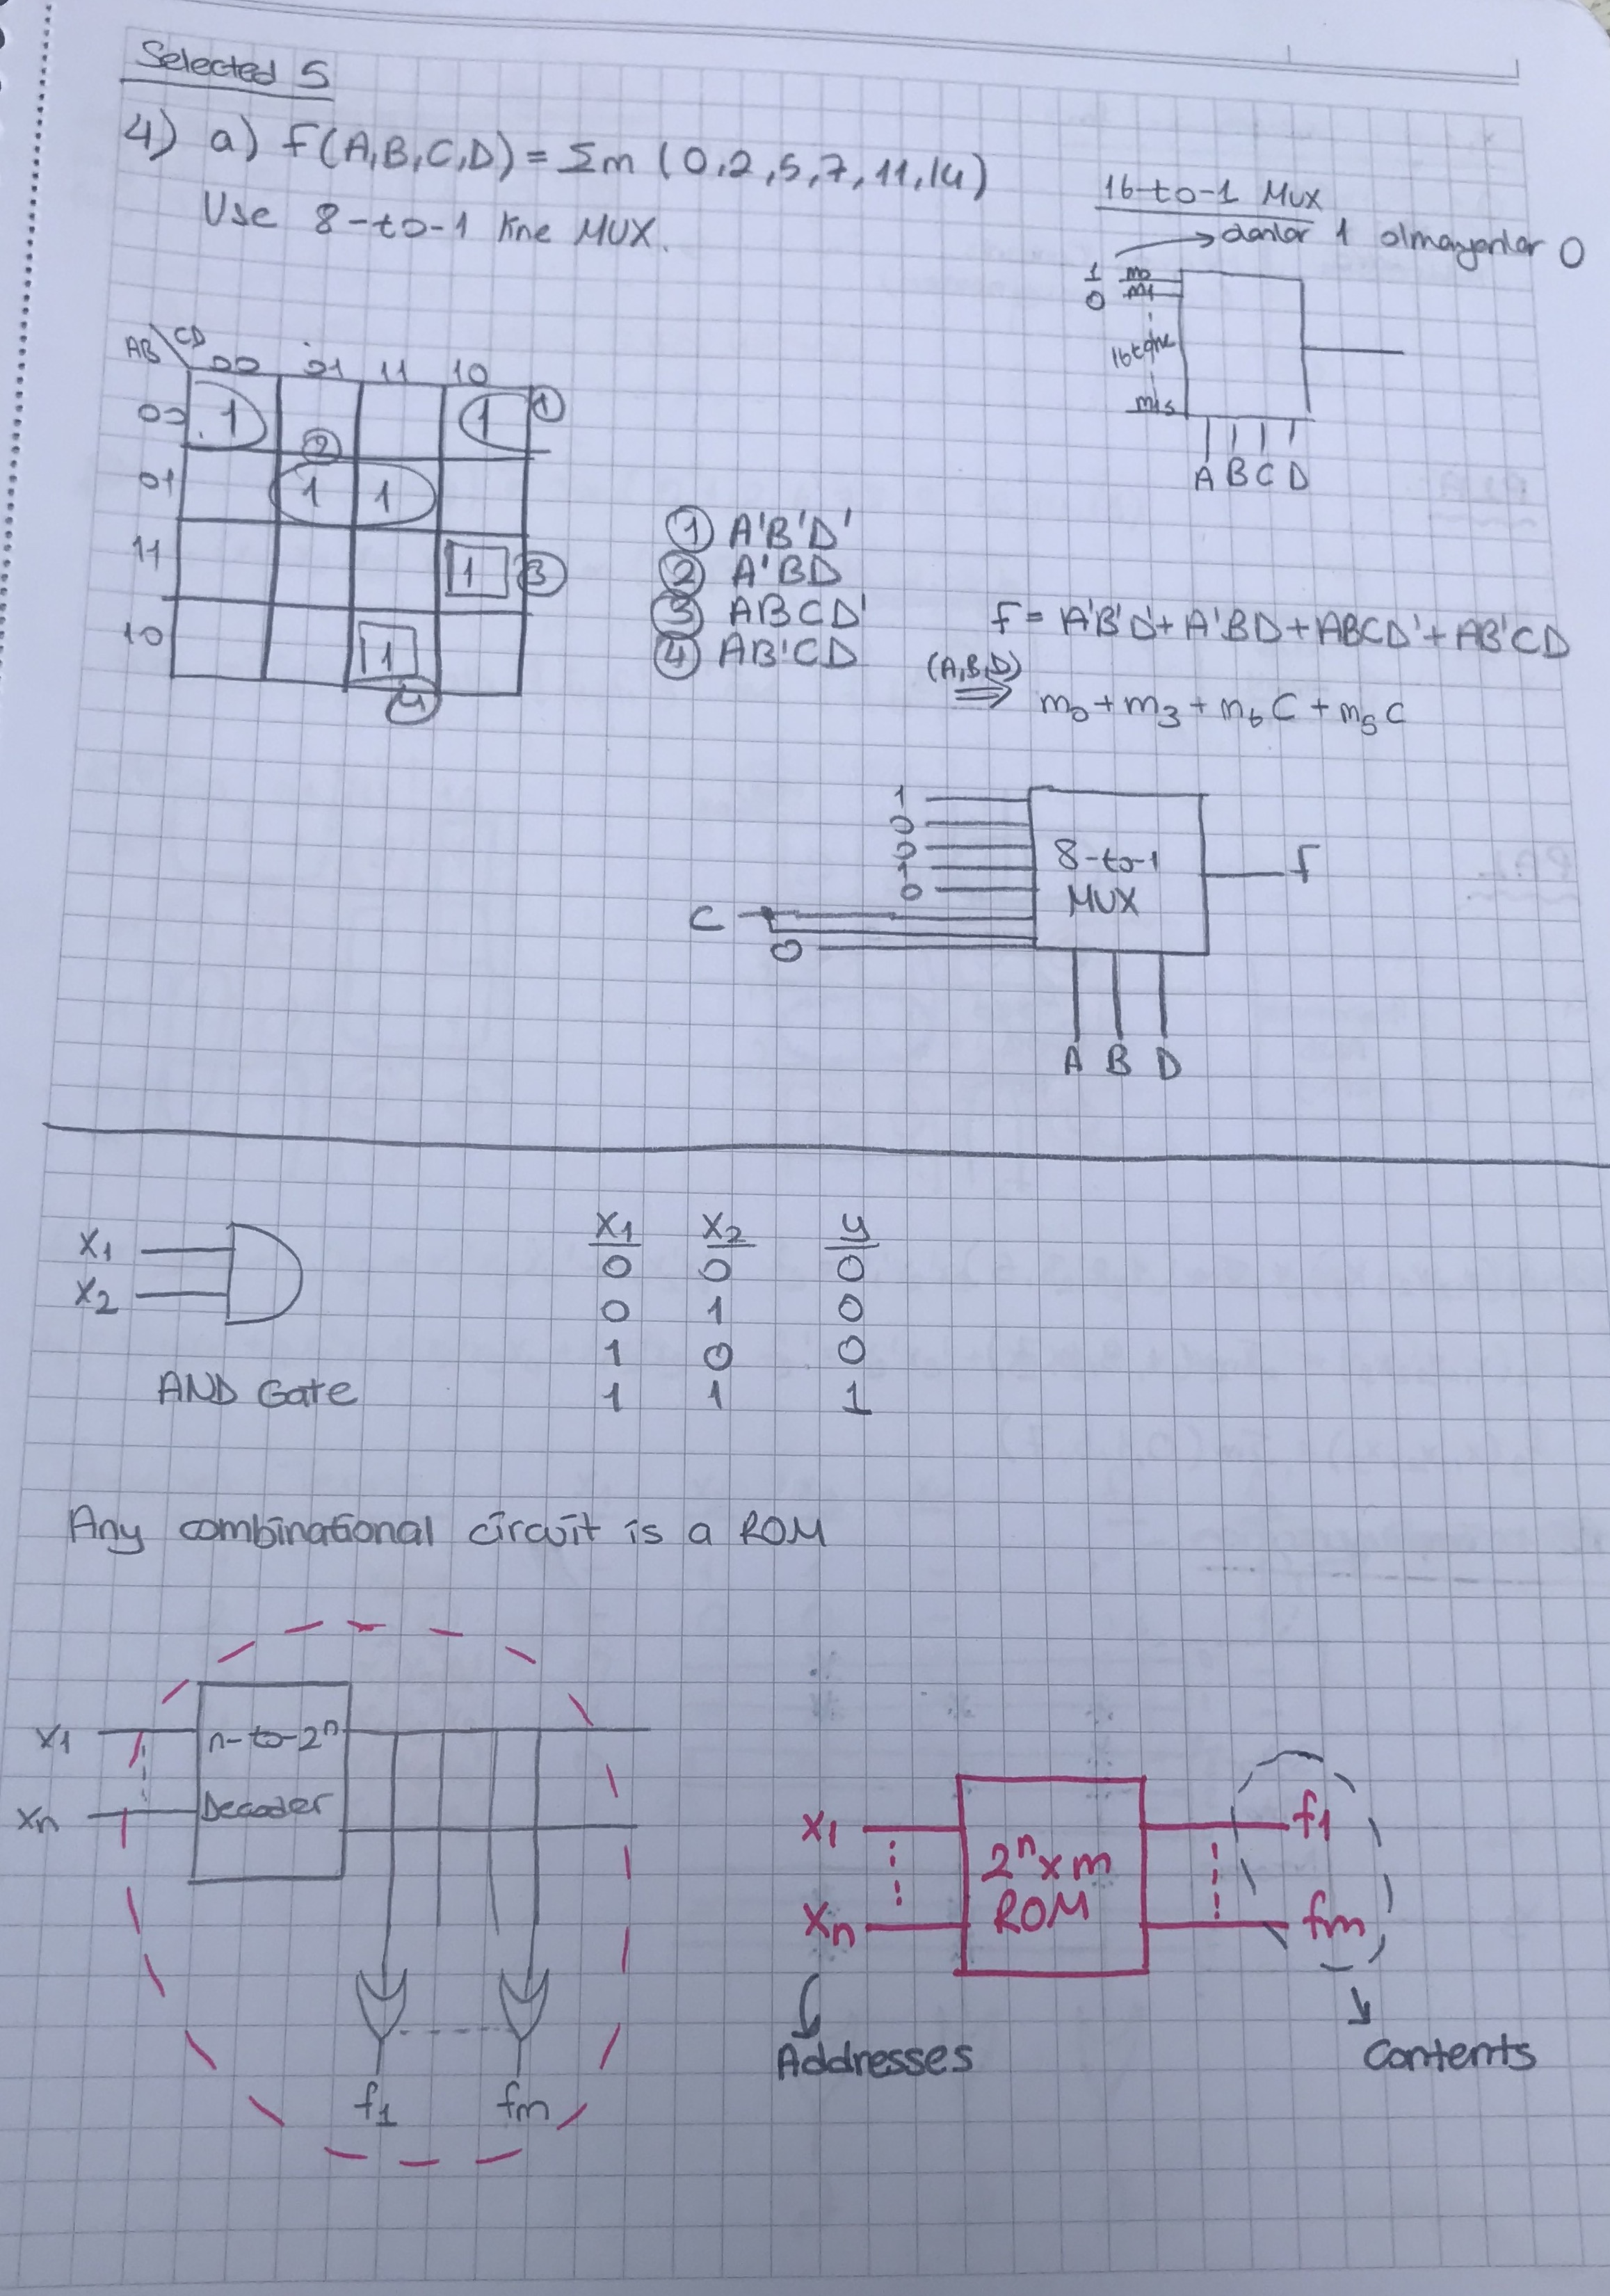 Selected 5
4) a) f(A,B,C,D) = Σm (0,2,5,7,11,14)
Use 8-to-1 line MUX.
16-to-1 Mux
→ olanlar 1 olmayanlar 0
1 m0
0 m1
16 tane
m15
A B C D
AB\CD 00 01 11 10
00 1 1 ①
②
01 1 1
11 1 ③
10 1
④
① A'B'D'
② A'BD
③ ABCD'
④ AB'CD
f = A'B'D'+A'BD+ABCD'+AB'CD
(A,B,D)
⇒ m0+m3+m6C+m5C
1
0
0
1
0
C
0
8-to-1
MUX
f
A B D
X1
X2
AND Gate
X1 X2 y
0 0 0
0 1 0
1 0 0
1 1 1
Any combinational circuit is a ROM
X1
Xn
n-to-2ⁿ
Decoder
f1 fm
X1
Xn
2ⁿxm
ROM
f1
fm
Addresses
Contents